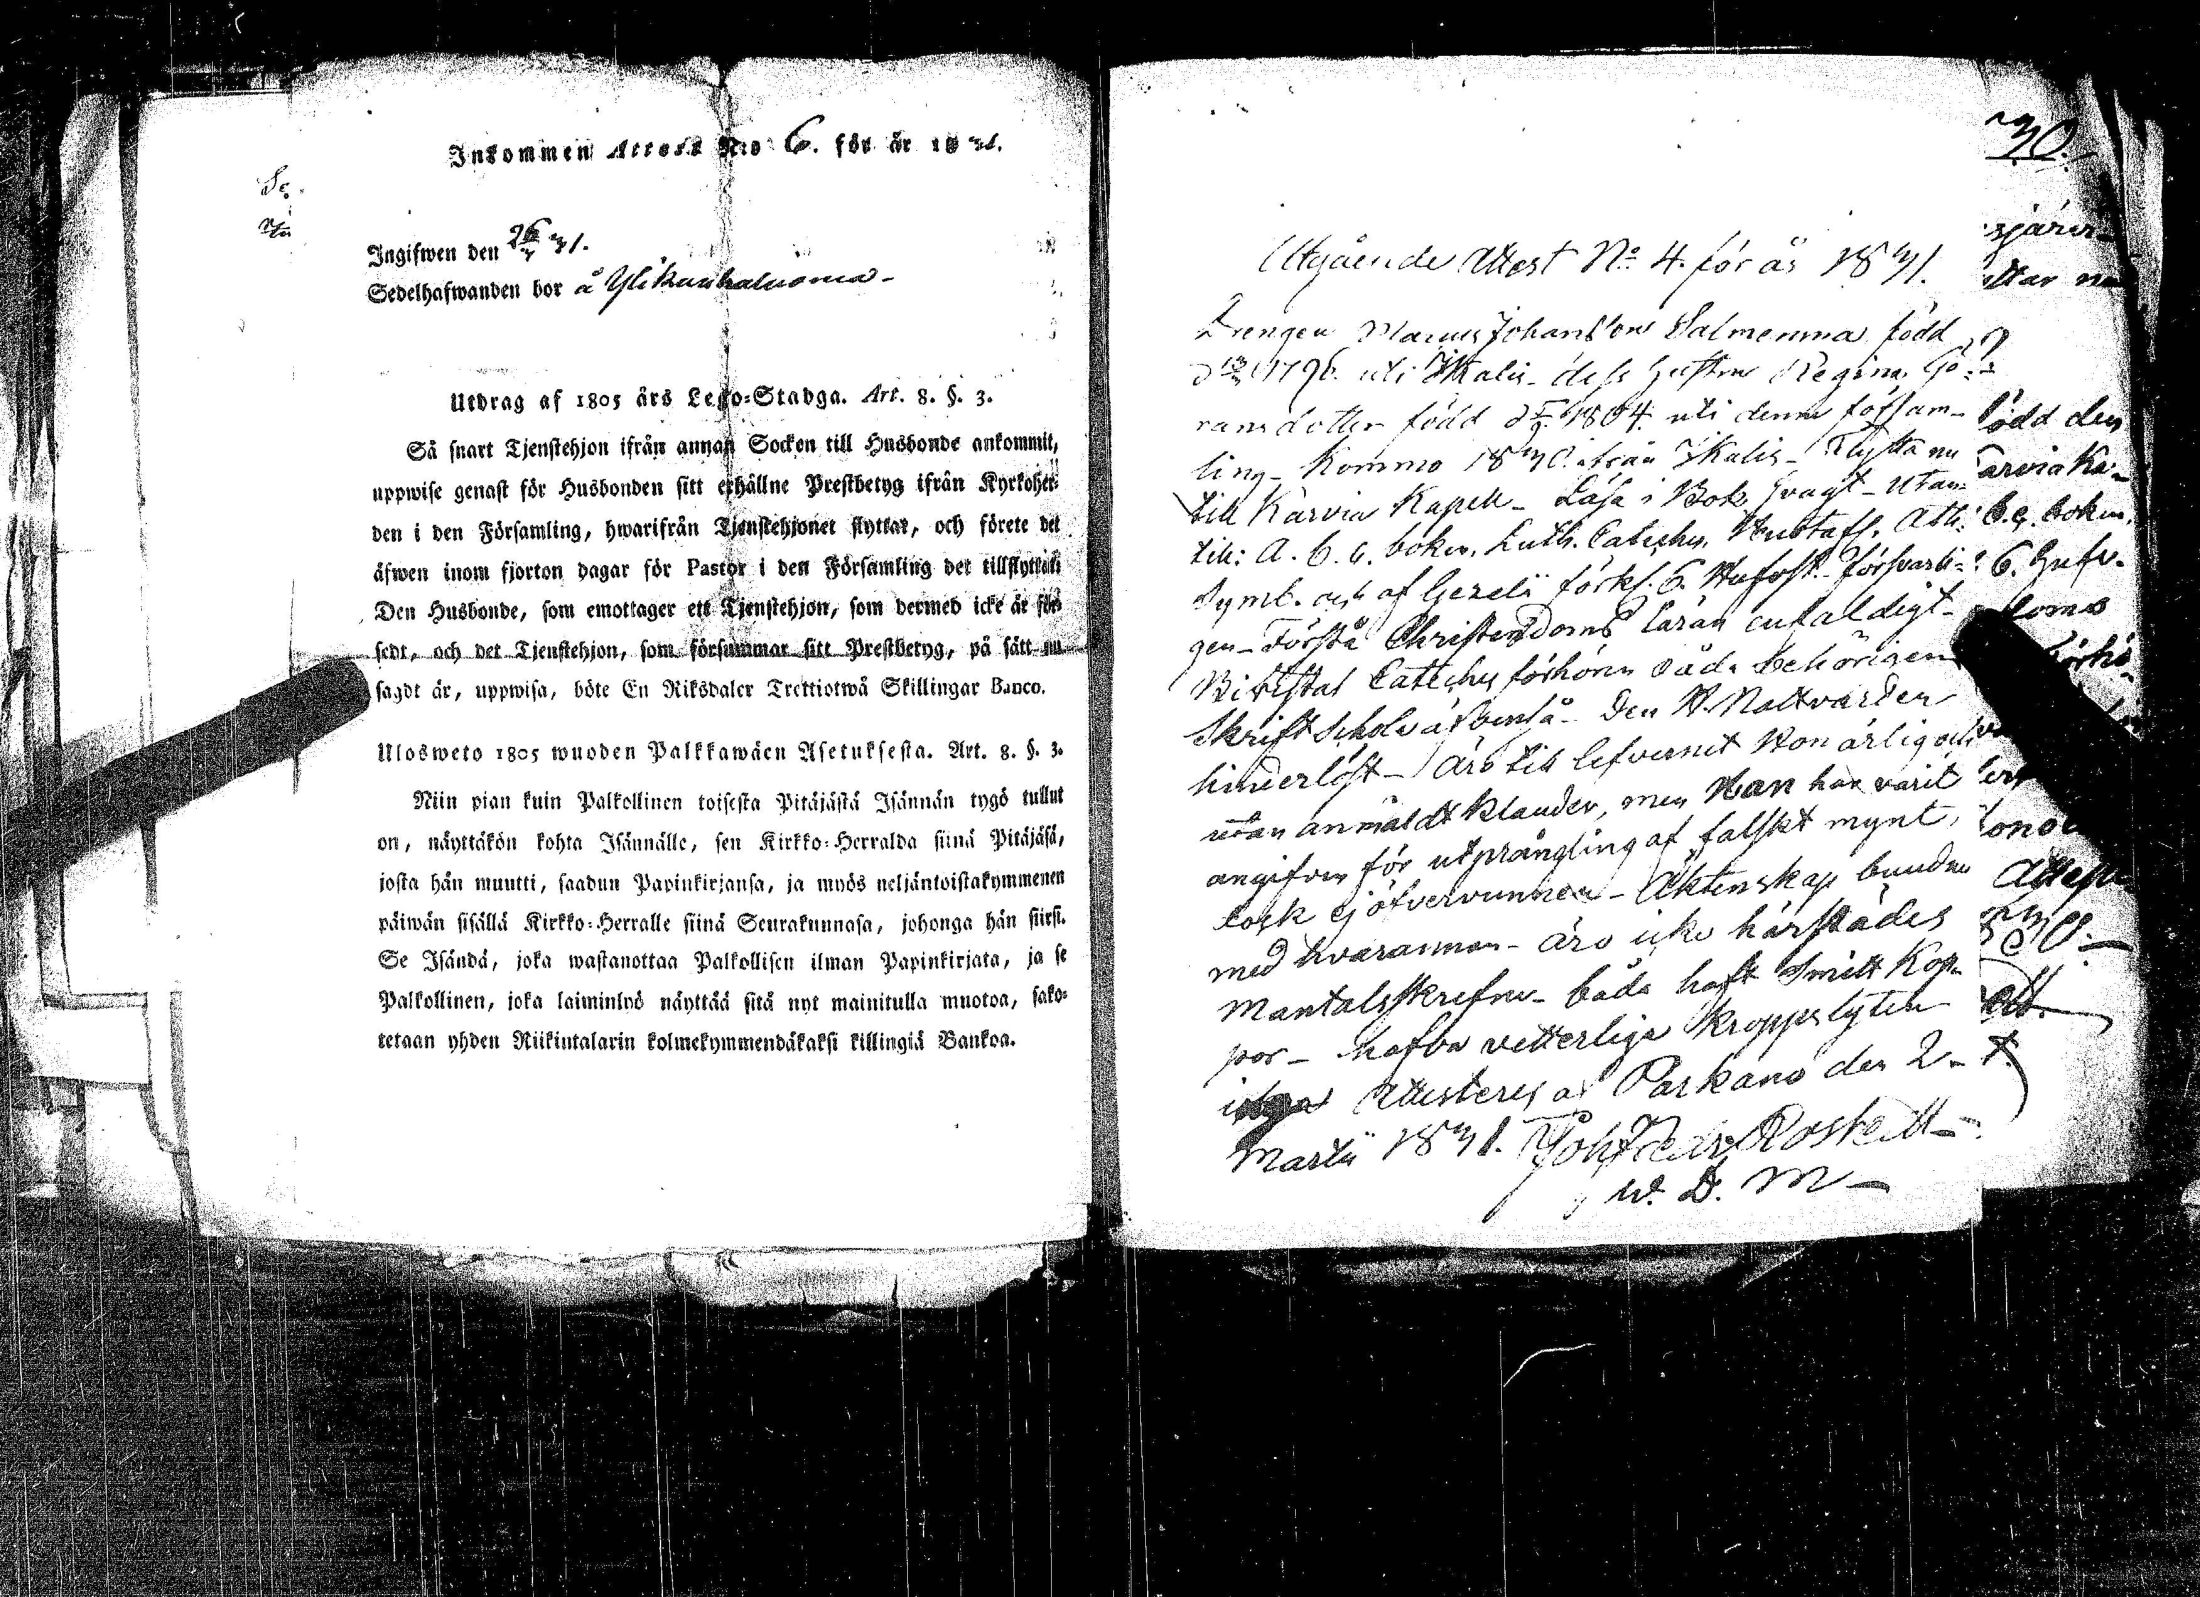 Inkommen Attest N:o 6. för år 1831.
Ingifwen den 26/4 31.
Sedelhafwanden bor å Ylikauhaluoma
Utdrag af 1805 års Lego-Stadga. Art. 8. §. 3.
Så snart Tjenstehjon ifrån annan Socken till Husbonde ankommit,
uppwise genast för Husbonden sitt erhållne Prestbetyg ifrån Kyrkoher-
den i den Församling, hwarifrån Tjenstehjonet flyttat, och förete det
äfwen inom fjorton dagar för Pastor i den Församling det tillflyttat.
Den Husbonde, som emottager ett Tjenstehjon, som dermed icke är för-
sedt, och det Tjenstehjon, som försummar sitt Prestbetyg, på sätt nu
sagdt är, uppwisa, böte En Riksdaler Trettiotwå Skillingar Banco.
Ulosweto 1805 wuoden Palkkawäen Asetuksesta. Art. 8. §. 3.
Niin pian kuin Palkollinen toisesta Pitäjästä Isännän tygö tullut
on, näyttäkön kohta Isännälle, sen Kirkko-Herralda siinä Pitäjäsä,
josta hän muutti, saadun Papinkirjansa, ja myös neljäntoistakymmenen
päiwän sisällä Kirkko-Herralle siinä Seurakunnasa, johonga hän siirsi.
Se Isändä, joka wastanottaa Palkollisen ilman Papinkirjata, ja se
Palkollinen, joka laiminlyö näyttää sitä nyt mainitulla muotoa, sako-
tetaan yhden Riikintalarin kolmekymmendäkaksi killingiä Bankoa.
Utgående Attest No 4. för år 1831.
Drengen Johansson Salmenma född
1796. uti Ikalis- dess hustru Regina Gö-
ransdotter född 1804. uti denna försam-
ling- Komma 1830 ifrån Ikalis- Flytta nu
till Karvia Kapell- Läsa i Bok svagt- Utan-
till: A. b. c. boken, Luth. Catechs, Hustafl, Ath:
Symb. och af Gezelii förkl. 6. Hufvst. Försvarli-
gen- Förstå Christendoms läran enfaldigt-
Bivistat Catechs förhören båda behörigen
Skriftschola äfvenså- Den H. Nattvarden
hinderlöst- Äro till lefvernet Hon ärlig och
utan anmäldt klander, men Han har varit
angifven för utprångling af falskt mynt,
dock ej öfvervunnen- Äktenskap bundne
med hvarannan- äro icke härstädes
Mantalsskrefne- båda haft Smitt Kop-
por- hafva vetterliga kroppslyten
inga Attesteres af Parkano den 2-
Martii 1831. Joh Rostedt
v. D. M-
30.
ödd den
arvia Ka-
b. c. boken.
6. Hufv.
doms